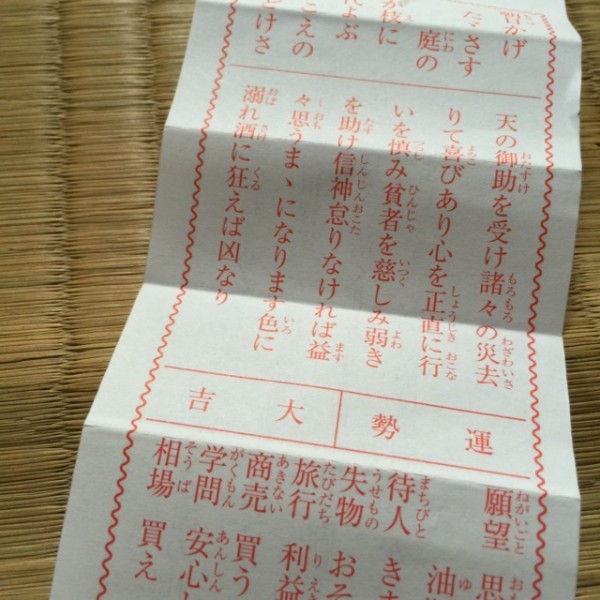 だささす
庭の
が枝に
天の御助を受け諸々の災去
りて喜びあり心を正直に行
いを慎み貧者を慈しみ弱き
を助け信神怠りなければ益
々思うまゝになります色に
溺れ酒に狂えば凶なり
運勢
大吉
願望 思
油
待人 きま
失物 おそ
旅行 利益
商売 買う
学問 安心し
相場 買え